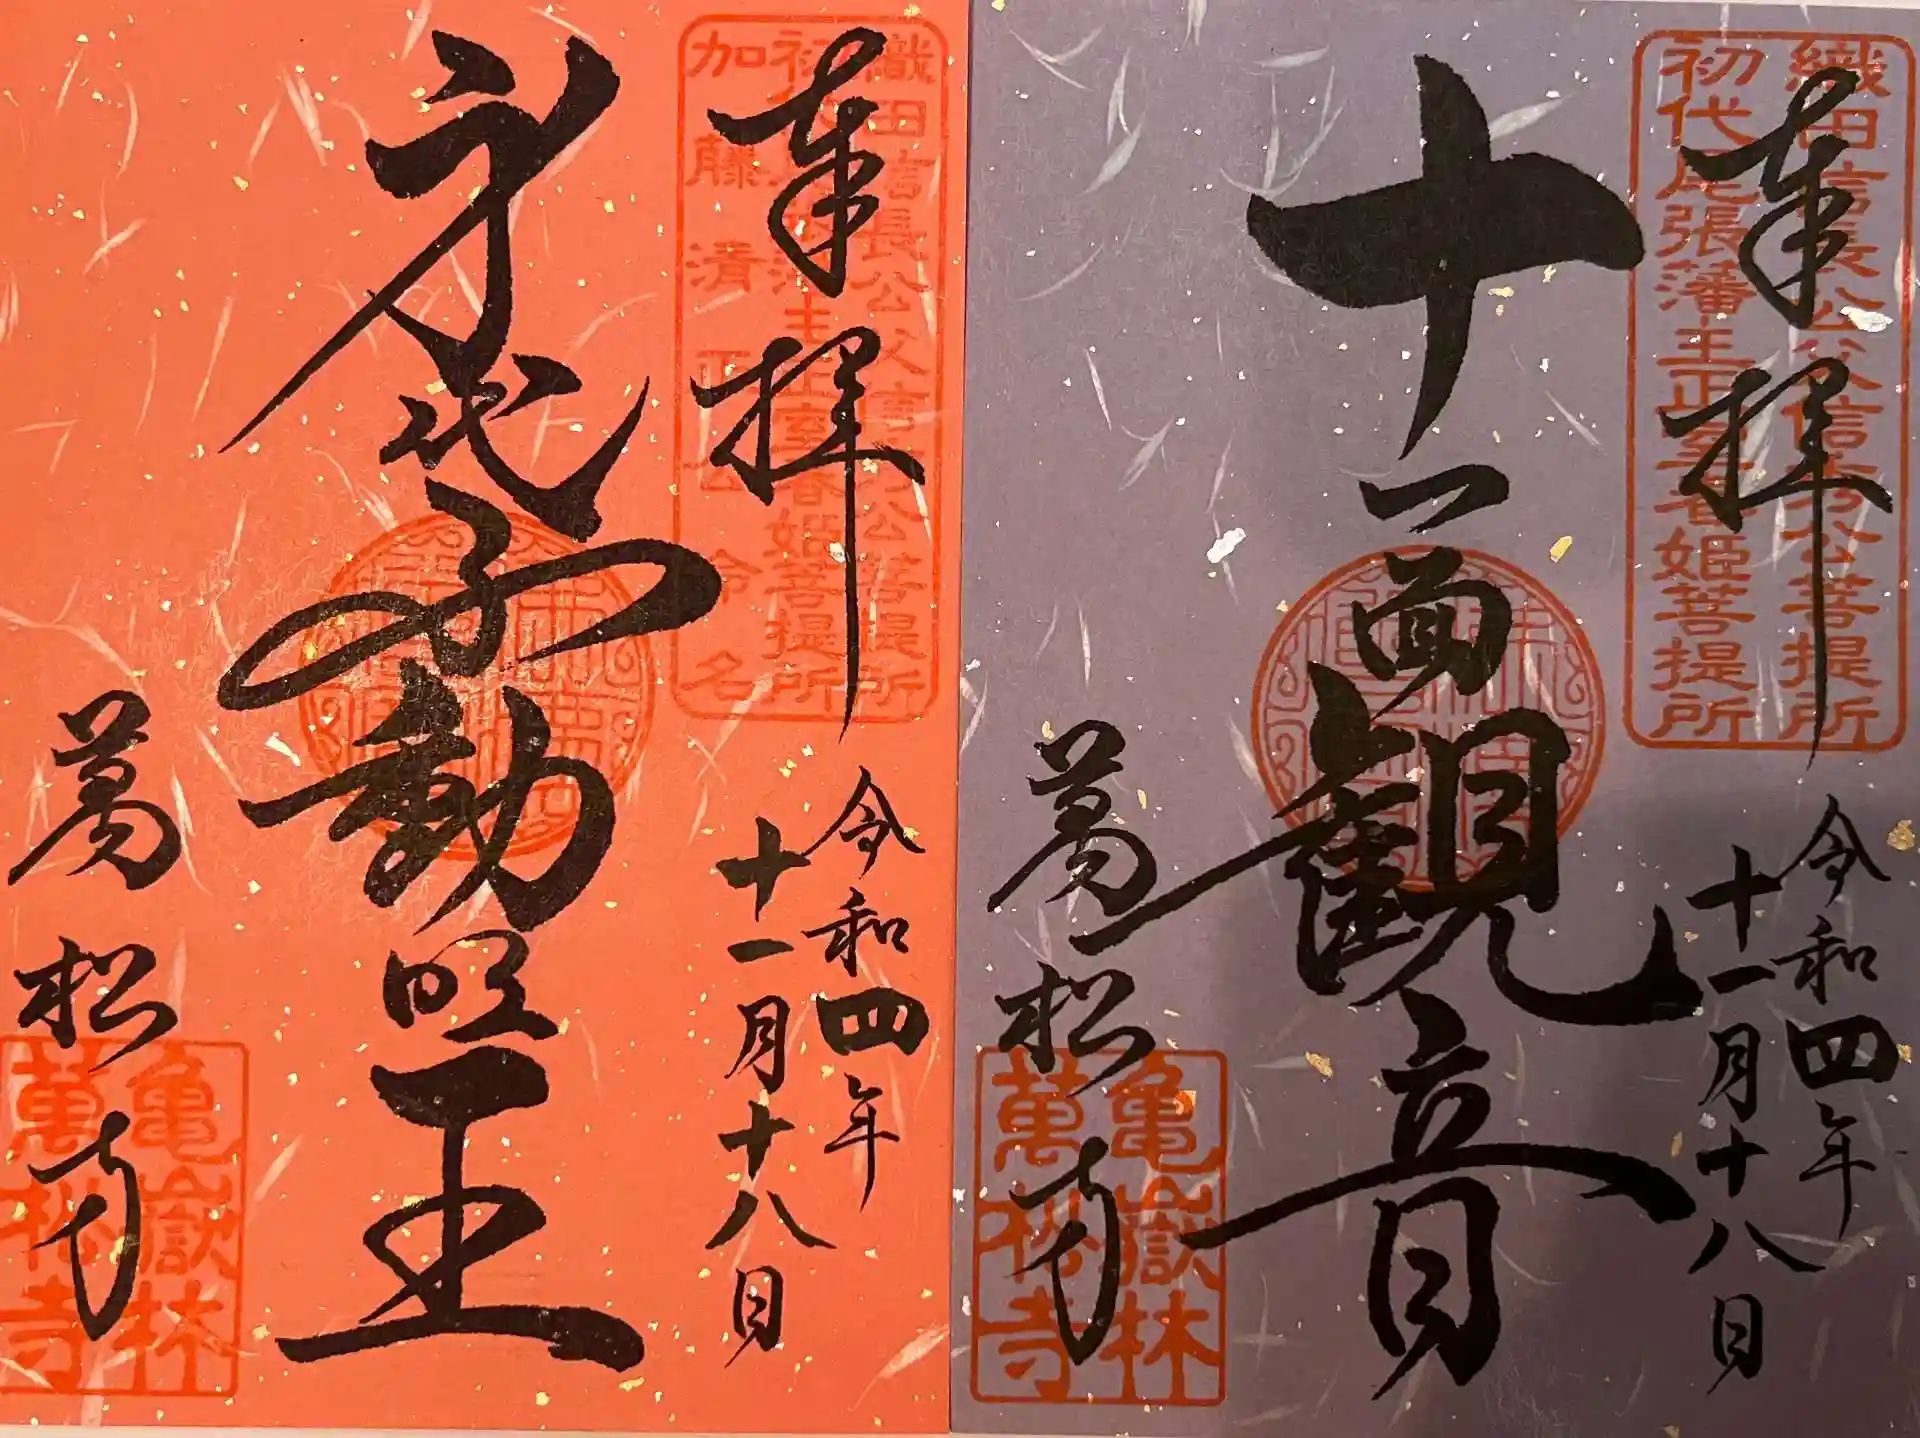 織田信長公父信秀公菩提所
初代尾張藩主正室春姫菩提所
奉拝
令和四年
十一月十八日
十一面観音
萬松寺
亀嶽林
萬松寺
織田信長公父信秀公菩提所
初代尾張藩主正室春姫菩提所
加藤清正公命名
奉拝
令和四年
十一月十八日
身代不動明王
萬松寺
亀嶽林
萬松寺